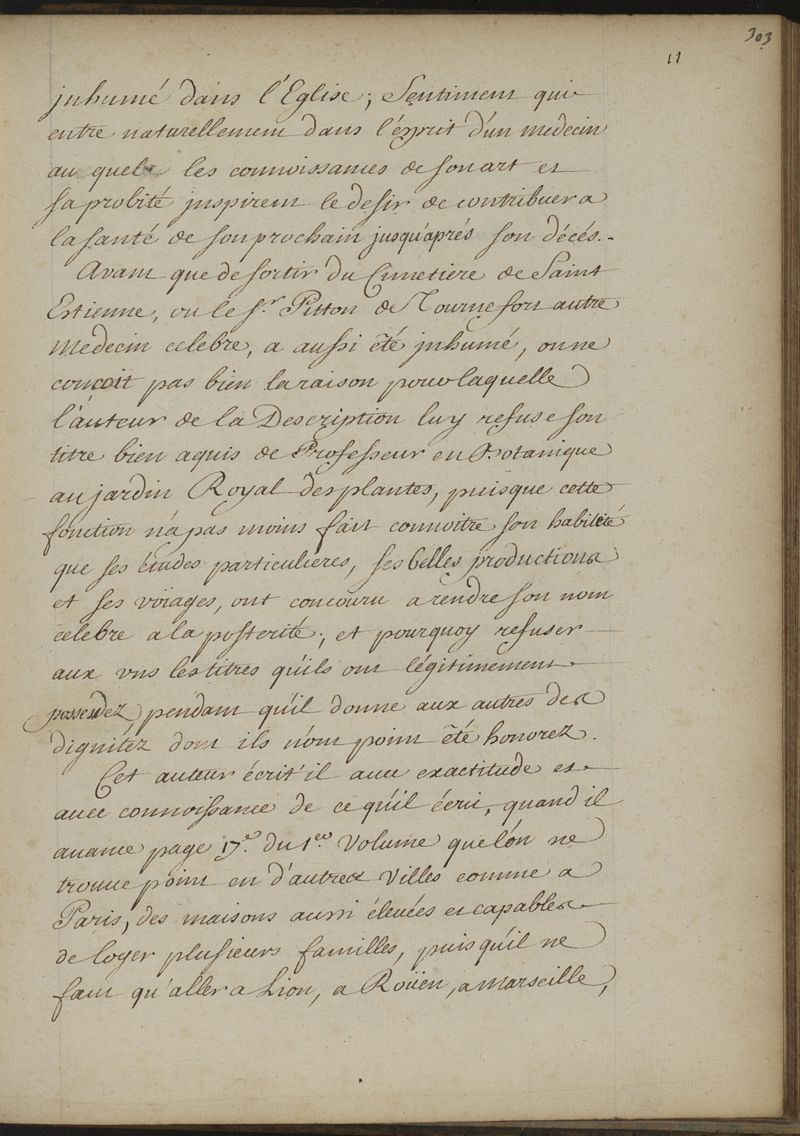 303
11
jnhumé dans l'Eglise; Sentiment qui
entre naturellement dans l'ésprit d'un medecin
au quel les connoissances de son art et
sa probité jnspirent le desir de contribuer a
la santé de son prochain jusqu'aprés son décés.
Avant que de sortir du Cimetiere de Saint
Estienne, ou le s.r Pitton de Tournefort autre
Medecin celebre, a aussi été jnhumé, on ne
conçoit pas bien la raison pour laquelle
l'áuteur de la Description luy refuse son
titre bien aquis de Professeur en Botanique
au jardin Royal des plantes, puisque cette
fonction n'a pas moins fait connoitre son habileté
que ses études particulieres, ses belles productions
et ses voiages, ont concouru a rendre son nom
celebre a la posterité; et pourquoy refuser
aux vns les titres qu'ils ont légitimement
possedez pendant qu'il donne aux autres des
dignitez dont ils n'ont point été honorez.
Cet auteur écrit'il auec exactitude et
auec connoissance de ce qu'il écrit, quand il
auance page 17.e du 1.er Volume que l'on ne
trouue point en d'autres Villes comme a
Paris, des maisons aussi éleuées et capables
de loger plusieurs familles, puis qu'il ne
faut qu'aller a Lion, a Roüen, a Marseille,